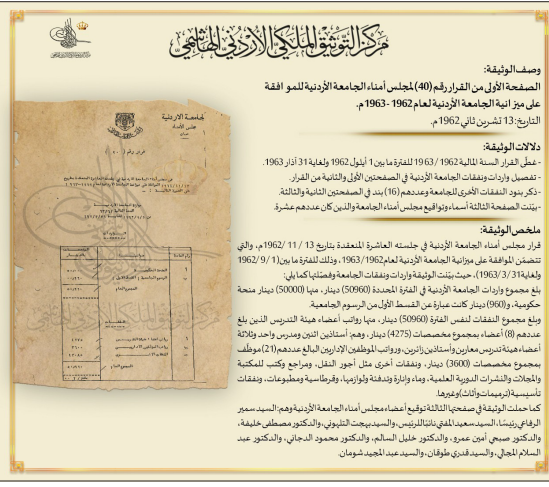 مركز التوثيق الملكي الأردني الهاشمي
وصف الوثيقة:
الصفحة الأولى من القرار رقم (40) لمجلس أمناء الجامعة الأردنية للموافقة
على ميزانية الجامعة الأردنية لعام 1962 -1963م.
التاريخ: 13 تشرين ثاني 1962م.
دلالات الوثيقة:
- غطّى القرار السنة المالية 1962/ 1963 للفترة ما بين 1 أيلول 1962 ولغاية 31 آذار 1963.
- تفصيل واردات ونفقات الجامعة الأردنية في الصفحتين الأولى والثانية من القرار.
- ذكر بنود النفقات الأخرى للجامعة وعددهم (16) بند في الصفحتين الثانية والثالثة.
- بيّنت الصفحة الثالثة أسماء وتواقيع مجلس أمناء الجامعة والذين كان عددهم عشرة.
ملخص الوثيقة:
قرار مجلس أمناء الجامعة الأردنية في جلسته العاشرة المنعقدة بتاريخ 13 / 11 / 1962م، والتي
تتضمّن الموافقة على ميزانية الجامعة الأردنية لعام 1962/ 1963م، وذلك للفترة ما بين (1 /9 /1962
ولغاية 31 /3 /1963)، حيث بيّنت الوثيقة واردات ونفقات الجامعة وفصّلتها كما يلي:
بلغ مجموع واردات الجامعة الأردنية في الفترة المحددة (50960) دينار، منها (50000) دينار منحة
حكومية، و(960) دينار كانت عبارة عن القسط الأول من الرسوم الجامعية.
وبلغ مجموع النفقات لنفس الفترة (50960) دينار، منها رواتب أعضاء هيئة التدريس الذين بلغ
عددهم (8) أعضاء بمجموع مخصصات (4275) دينار، وهم: أستاذين اثنين ومدرس واحد وثلاثة
أعضاء هيئة تدريس معارين وأستاذين زائرين، ورواتب الموظفين الإداريين البالغ عددهم (21) موظّف
بمجموع مخصصات (3600) دينار، ونفقات أخرى مثل أجور النقل، ومراجع وكتب للمكتبة
والمجلات والنشرات الدورية العلمية، وماء وإنارة وتدفئة ولوازمها، وقرطاسية ومطبوعات، ونفقات
تأسيسية (ترميمات وأثاث) وغيرها.
كما حملت الوثيقة في صفحتها الثالثة توقيع أعضاء مجلس أمناء الجامعة الأردنية وهم: السيد سمير
الرفاعي رئيسًا، السيد سعيد المفتي نائبًا للرئيس، والسيد بهجت التلهوني، والدكتور مصطفى خليفة،
والدكتور صبحي أمين عمرو، والدكتور خليل السالم، والدكتور محمود الدجاني، والدكتور عبد
السلام المجالي، والسيد قدري طوقان، والسيد عبد المجيد شومان.
الجامعة الأردنية
مجلس الأمناء